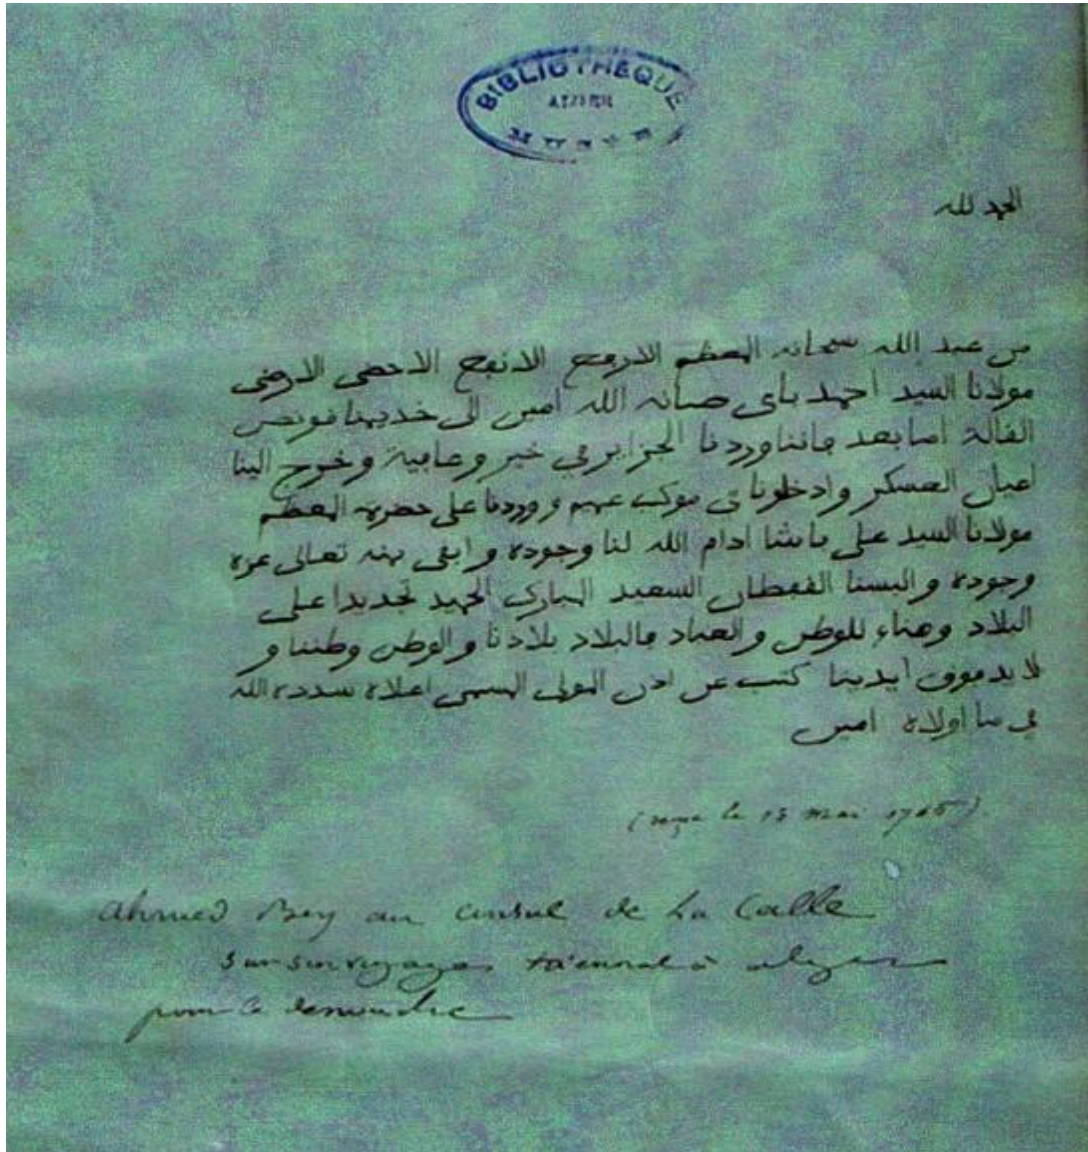 BIBLIOTHEQUE
ALGER
MUSEE
الحمد لله
من عبد الله سبحانه المعظم الارفع الانجح الاحضى الارضى
مولانا السيد احمد باى صانه الله امين الى خديمنا فونصو
القالة اما بعد فاننا وردنا الجزاير في خير وعافية وخرج الينا
اعيان العسكر وادخلونا في موكب عظيم ووردنا على حضرة المعظم
مولانا السيد على باشا ادام الله لنا وجوده وابقى بمنه تعالى عزه
وجوده والبسنا القفطان السعيد المبارك الحميد تجديدا على
البلاد وهناء للوطن والعباد فالبلاد بلادنا والوطن وطننا و
لا يد فوق ايدينا كتب عن اذن المولى المسمى اعلاه سدده الله
في ما اولاه امين
(reçue le 13 mai 1765).
Ahmed Bey au consul de La Calle
sur son voyage triennal à Alger
pour le